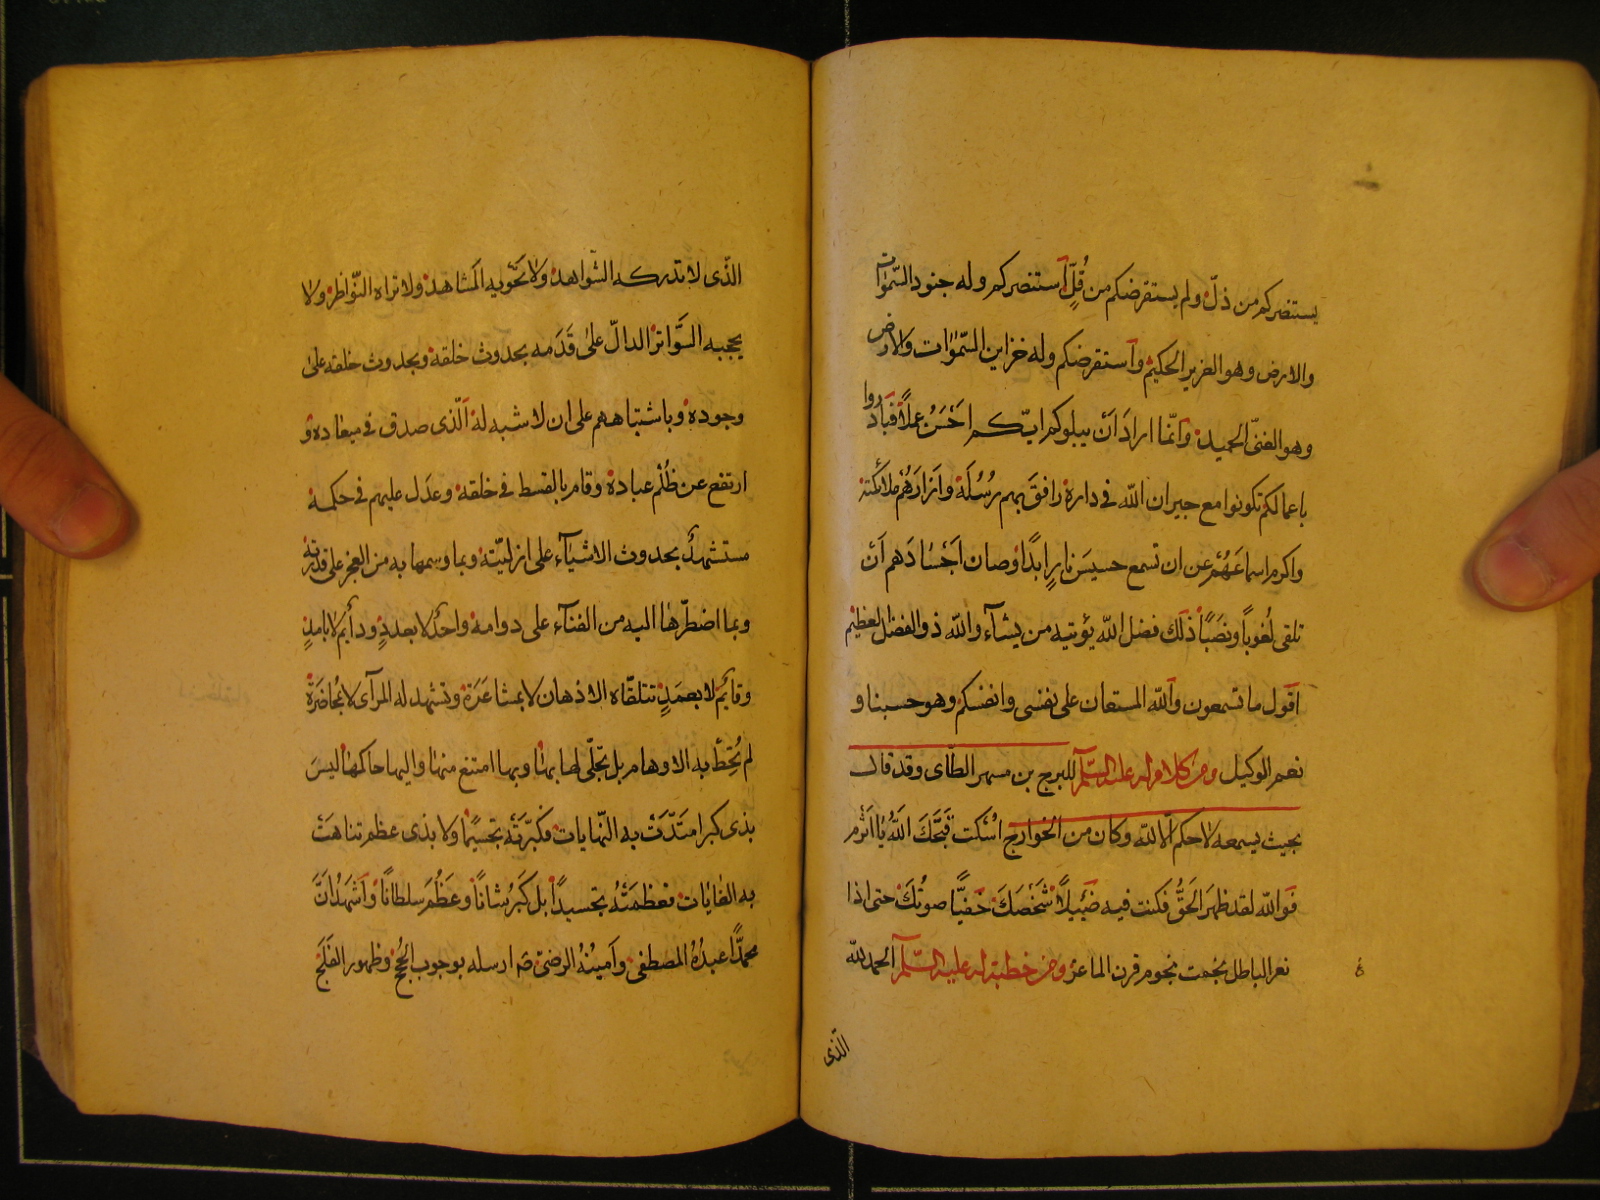 يستنصركم من ذلّ ولم يستقرضكم من قُلّ آستنصركم وله جنود السّموات
والارض وهو العزيز الحكيم وآستقرضكم وله خزاين السّموات والارض
وهو الغنىّ الحميد وآنّما اراد اَن يبلوكم ايّكم اَحْسَنُ عملاً فَبَادروا
باعمالكم تكونوا مع جيران الله فى داره رافق بهم رُسُلَه وازارهُم ملائكته
واكرم اسماعَهُم عن ان تسمع حسيسَ نارٍ ابدًا وصان اَجْسَادَهم اَن
تلقى لُغوباً ونصَباً ذٰلك فضل الله يؤتيه من يشآء والله ذو الفضل العظيم
آقول ما تسمعون وآلله المستعان على نفسى وانفسكم وهو حسبنا و
نعم الوكيل ومن كلام له عليه السّلم للبرج بن مسهر الطّاى وقد قال
بحيث يسمعه لا حكم الّا لله وكان من الخوارج اسْكت قَبَّحَكَ اللهُ يا اَثْرم
فَوالله لقد ظهرَ الحَقُّ فكنت فيه ضَئيلاً شَخْصَكَ خَفيًّا صوتُكَ حتى اذا
نعر الباطل نجمت نجوم قرن الماعز ومن خطبة له عليه السّلم الحمد لله
الّذى
الذّى لا تدركه الشّواهد ولا تحْويه المَشاهد ولا تراه النّواظر ولا
يحجبه السَّواتر الدالّ على قَدَمه بحدوث خلقه وبحدوث خلقه على
وجوده وباشتباههم على ان لا شبه له اَلّذى صدق فى ميعاده و
ارتفع عن ظُلْم عباده وقام بالقسط فى خلقه وعدَل عليهم فى حكمه
مستشهدٌ بحدوث الاشيآء على ازليّته وبما وسمها به من العجز على قدرته
وبما اضطّرها اليه من الفنآء على دوامه واحدٌ لا بعددٍ ودآئم لا بامدٍ
وقآئم لا بعمَدٍ تتلقّاه الاذهان لا بمشاعَرَة وتشهد له المرآى لا بمُحاضَرَة
لم تُحِطْ به الاوهام بل تجلّى لها بها وبها امتنع منها واليها حاكمها ليسَ
بذى كبر امتَدّتْ به النّهايات فكبّرَتْه تجسيمًا ولا بذى عظم تناهَتْ
به الغايات فعظّمَتْهُ تجسيداً بل كَبُرَ شاناً وعَظُمَ سلطاناً وآشهَدُ اَنَّ
محمّداً عبدُهُ المصطفى وآمينُهُ الرضىّ صٓ ارسله بوجوب الحُجج وظهور الفَلَج